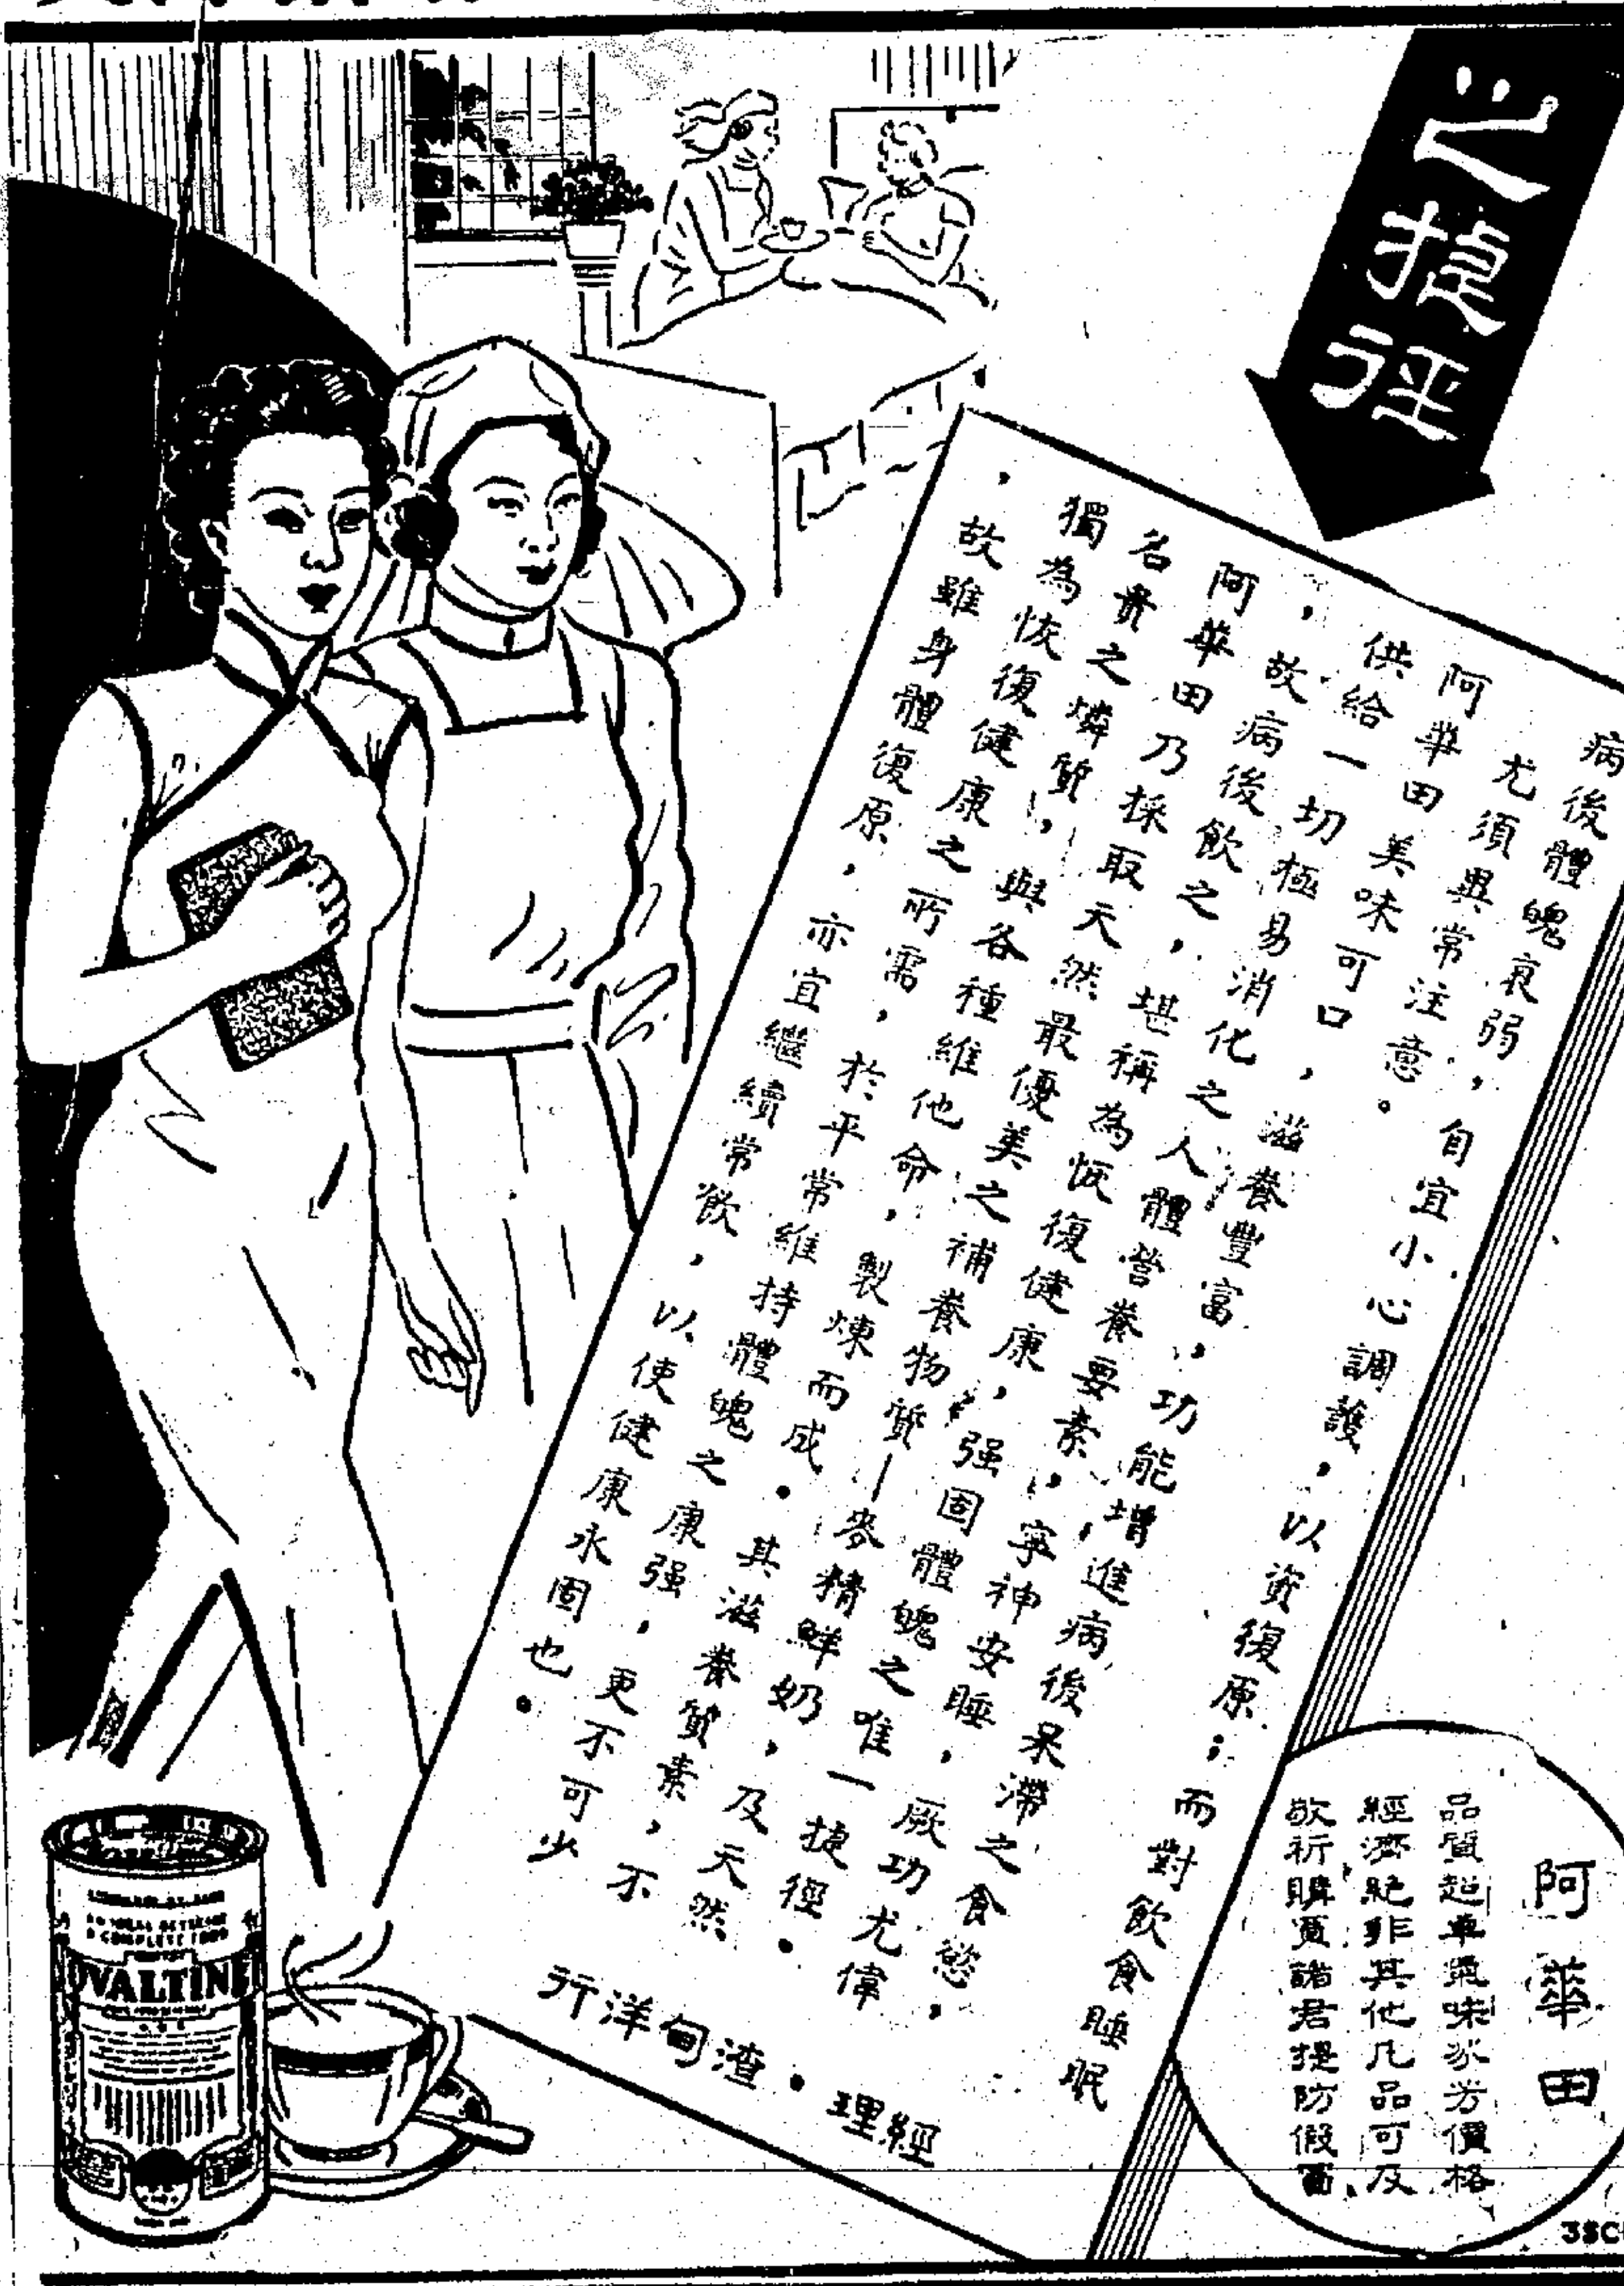 之捷徑
病後體魄衰弱,自宜小心調護,以資復原;而對飲食睡眠
尤須異常注意。
阿華田美味可口,滋養豐富,功能增進病後呆滯之食慾,
供給一切極易消化之人體營養要素,寧神安睡,厥功尤偉
,故病後飲之,堪稱為恢復健康,强固體魄之唯一捷徑。
阿華田乃採取天然最優美之補養物質—麥精鮮奶,及天然
名貴之燐質,與各種維他命,製煉而成。其滋養質素,不
獨為恢復健康之所需,於平常維持體魄之康强,更不可少
,故雖身體復原,亦宜繼續常飲,以使健康永固也。
經理・渣甸洋行
阿華田
品質超卓氣味芳價格
經濟絕非其他凡品可及
敬祈購買諸君提防假冒
A COMPLETE FOOD
OVALTINE